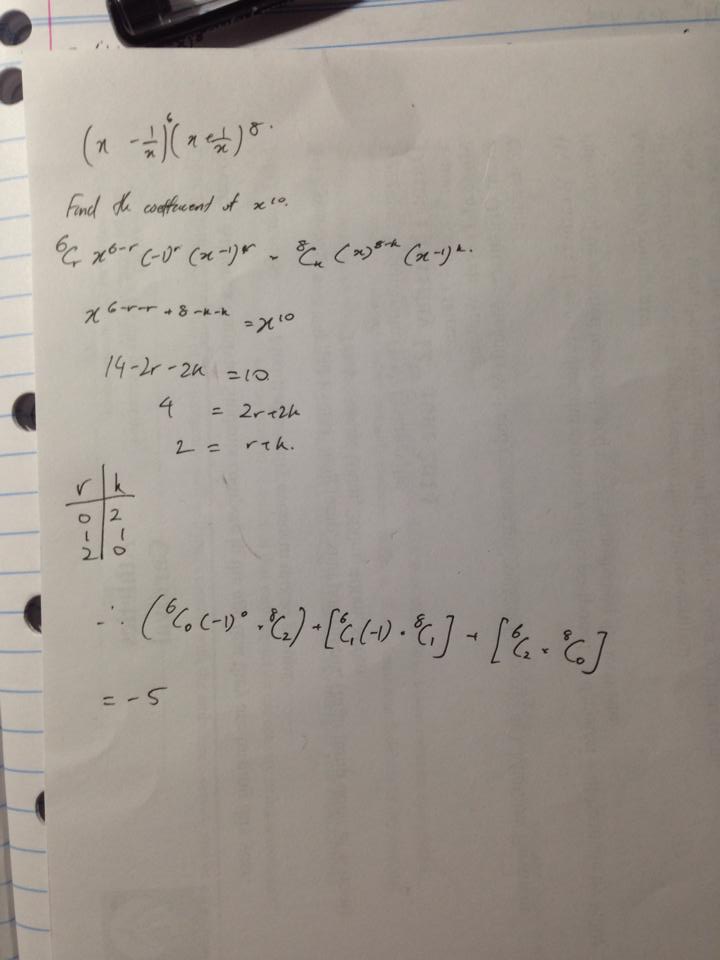 (x - 1/x)⁶(x + 1/x)⁸.
Find the coefficient of x¹⁰.
⁶Cᵣ x⁶⁻ʳ (-1)ʳ (x⁻¹)ʳ × ⁸Cₖ (x)⁸⁻ᵏ (x⁻¹)ᵏ.
x⁶⁻ʳ⁻ʳ⁺⁸⁻ᵏ⁻ᵏ = x¹⁰
14-2r-2k = 10.
4 = 2r+2k
2 = r+k.
r | k
0 | 2
1 | 1
2 | 0
∴ (⁶C₀(-1)⁰ × ⁸C₂) + [⁶C₁(-1) × ⁸C₁] + [⁶C₂ × ⁸C₀]
= -5